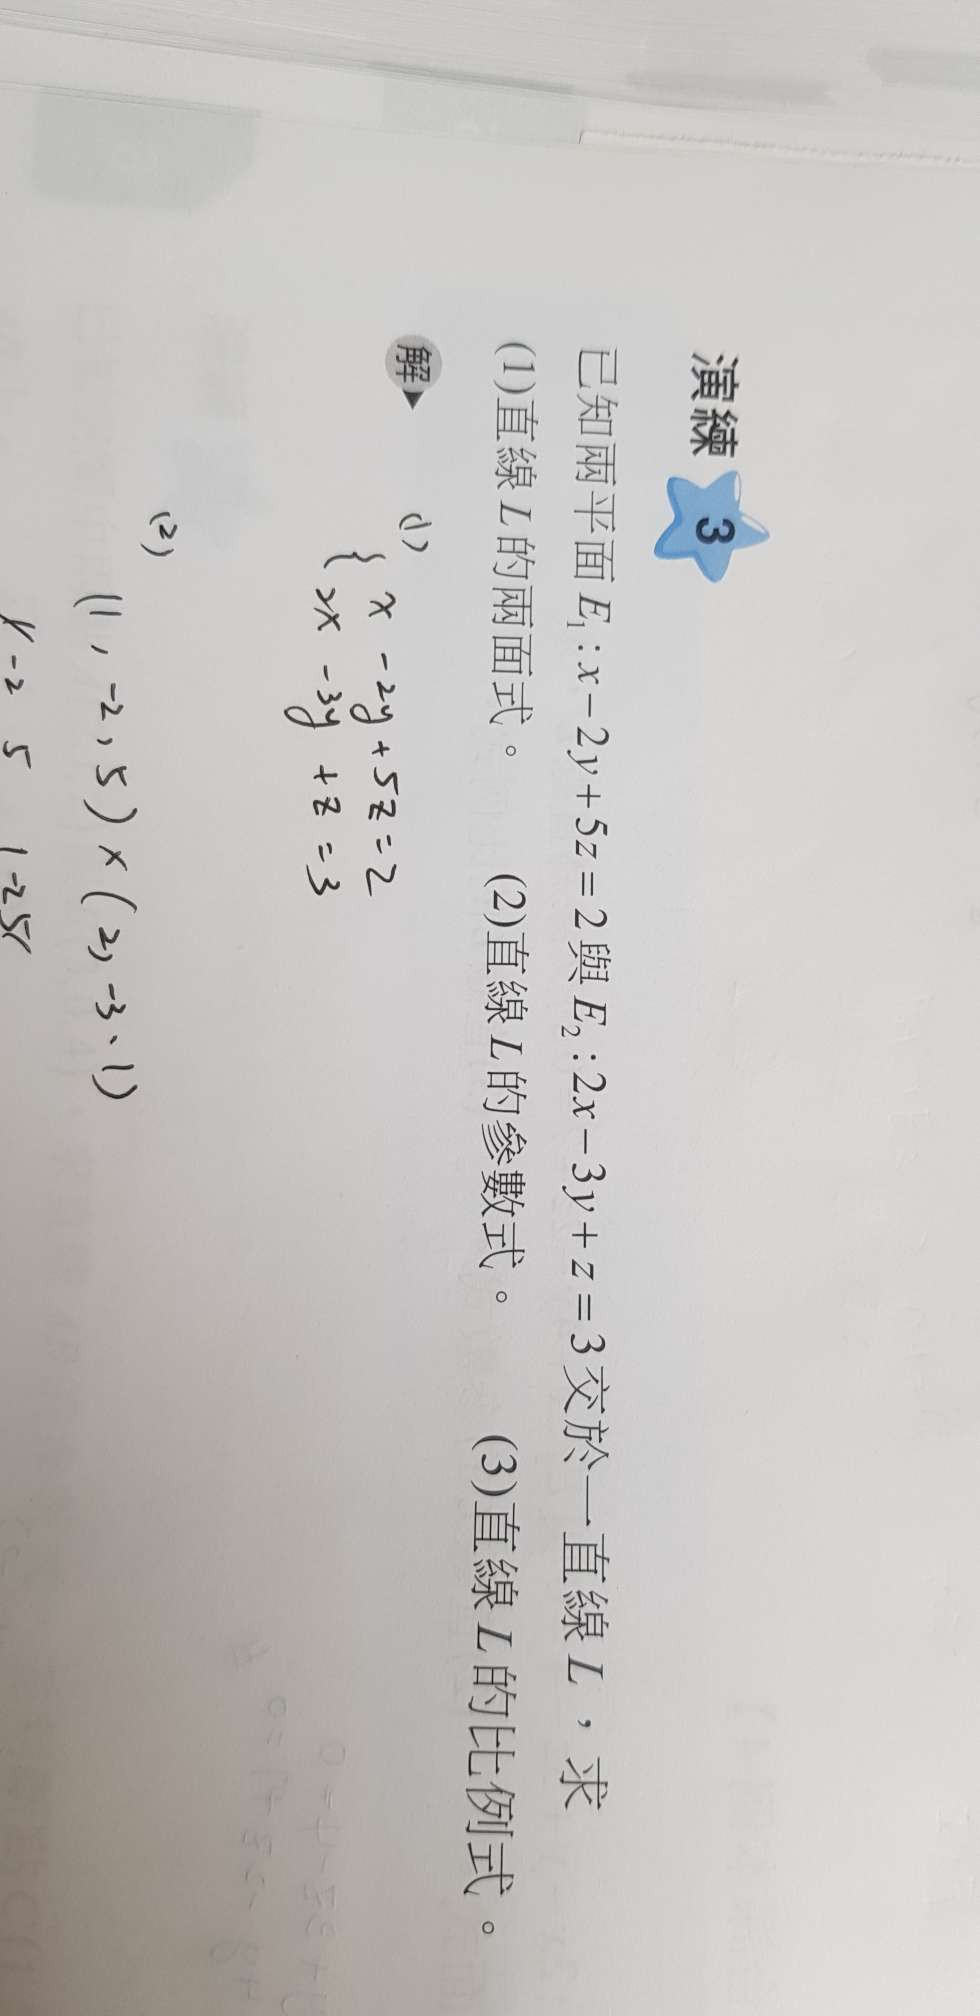 演練 3
已知兩平面 E₁:x-2y+5z=2與E₂:2x-3y+z=3交於一直線L,求
(1)直線L的兩面式。 (2)直線L的參數式。 (3)直線L的比例式。
解
(1) { x -2y+5z=2
2x -3y+z=3
(2) (1,-2,5)×(2,-3、1)
1 -2 5 1 -2 5